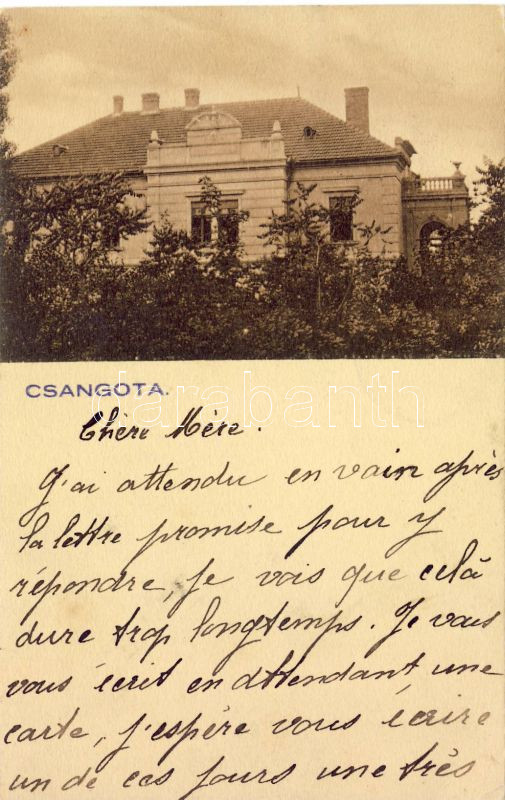 CSANGOTA.
darabanth
Chère Mère.
J'ai attendu en vain après
la lettre promise pour y
répondre, je vois que celà
dure trop longtemps. Je vous
vous écrit en attendant une
carte, j'espère vous écrire
un de ces jours une très